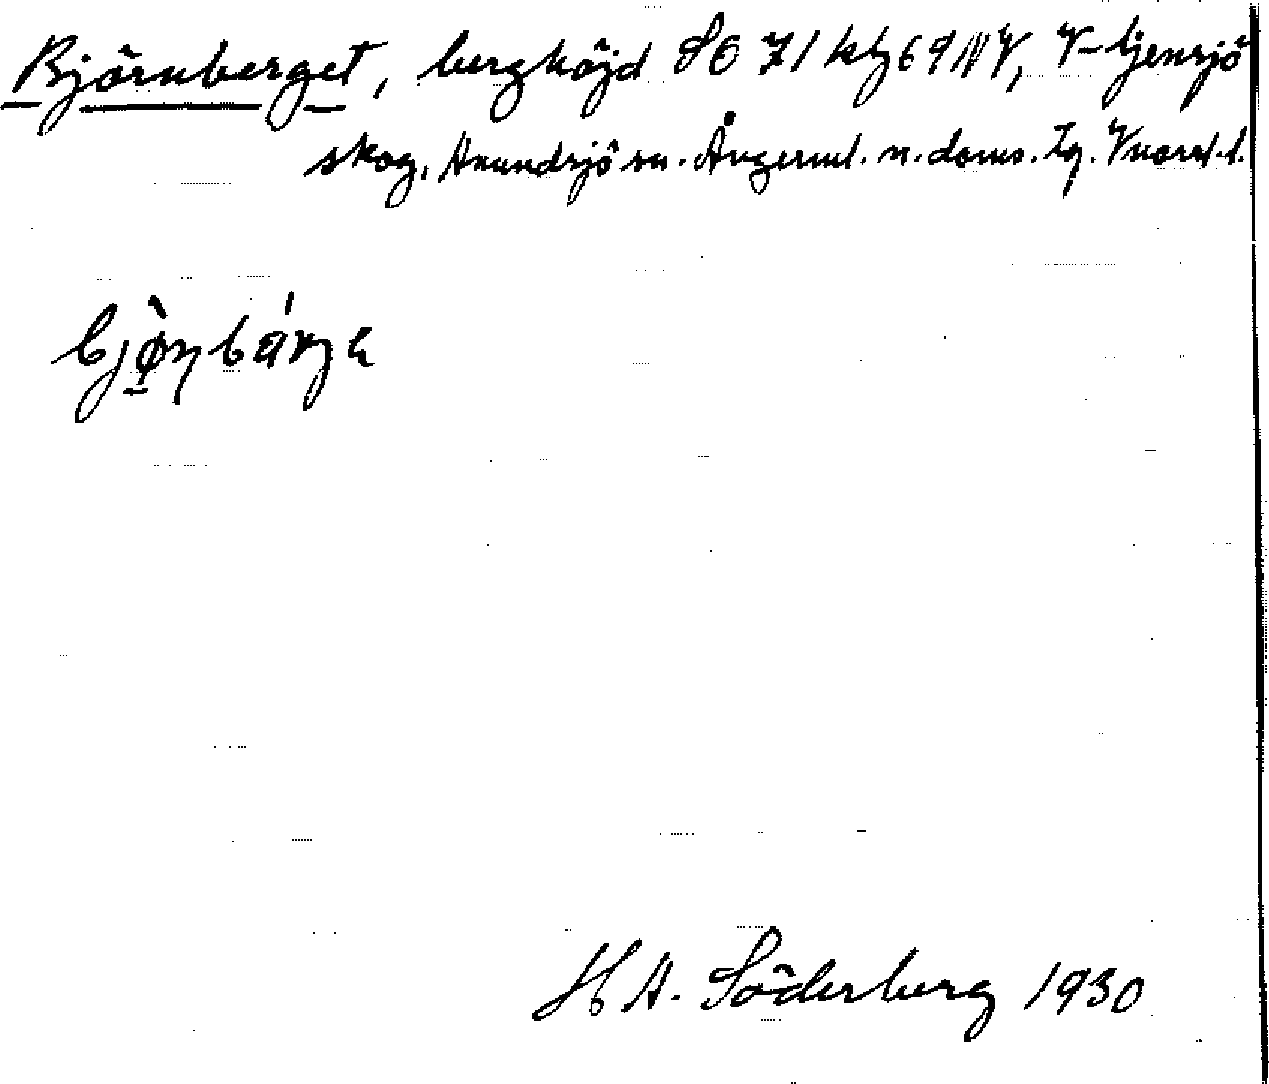 Björnberget, berghöjd SO 71 kbl 69 NV, V-Gensjö
skog, Anundsjö sn. Ångerml. n. doms. Tg. Vnorrl. l.
bjø̀ṇbárjɛ
H A. Söderberg 1930